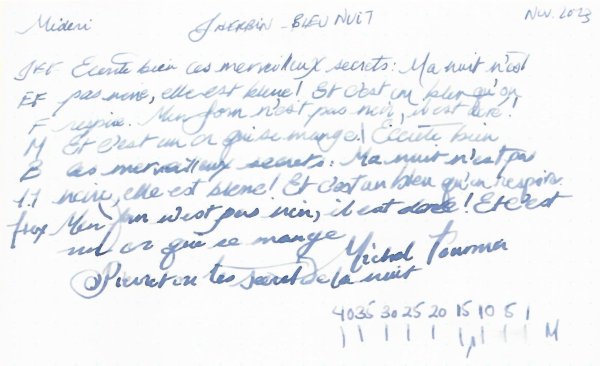 Midori J HERBIN - BLEU NUIT Nov. 2023
Écoute bien ces merveilleux secrets: Ma nuit n'est
EF pas noire, elle est bleue! Et c'est un bleu qu'on
F respire. Mon four n'est pas noir, il est doré!
M Et c'est un or qui se mange! Écoute bien
B ces merveilleux secrets: Ma nuit n'est pas
1.1 noire, elle est bleue! Et c'est un bleu qu'on respire.
Mon four n'est pas noir, il est doré! Et c'est
un or que se mange Michel Tournier
Pierrot ou les secrets de la nuit
40 35 30 25 20 15 10 5 1
M